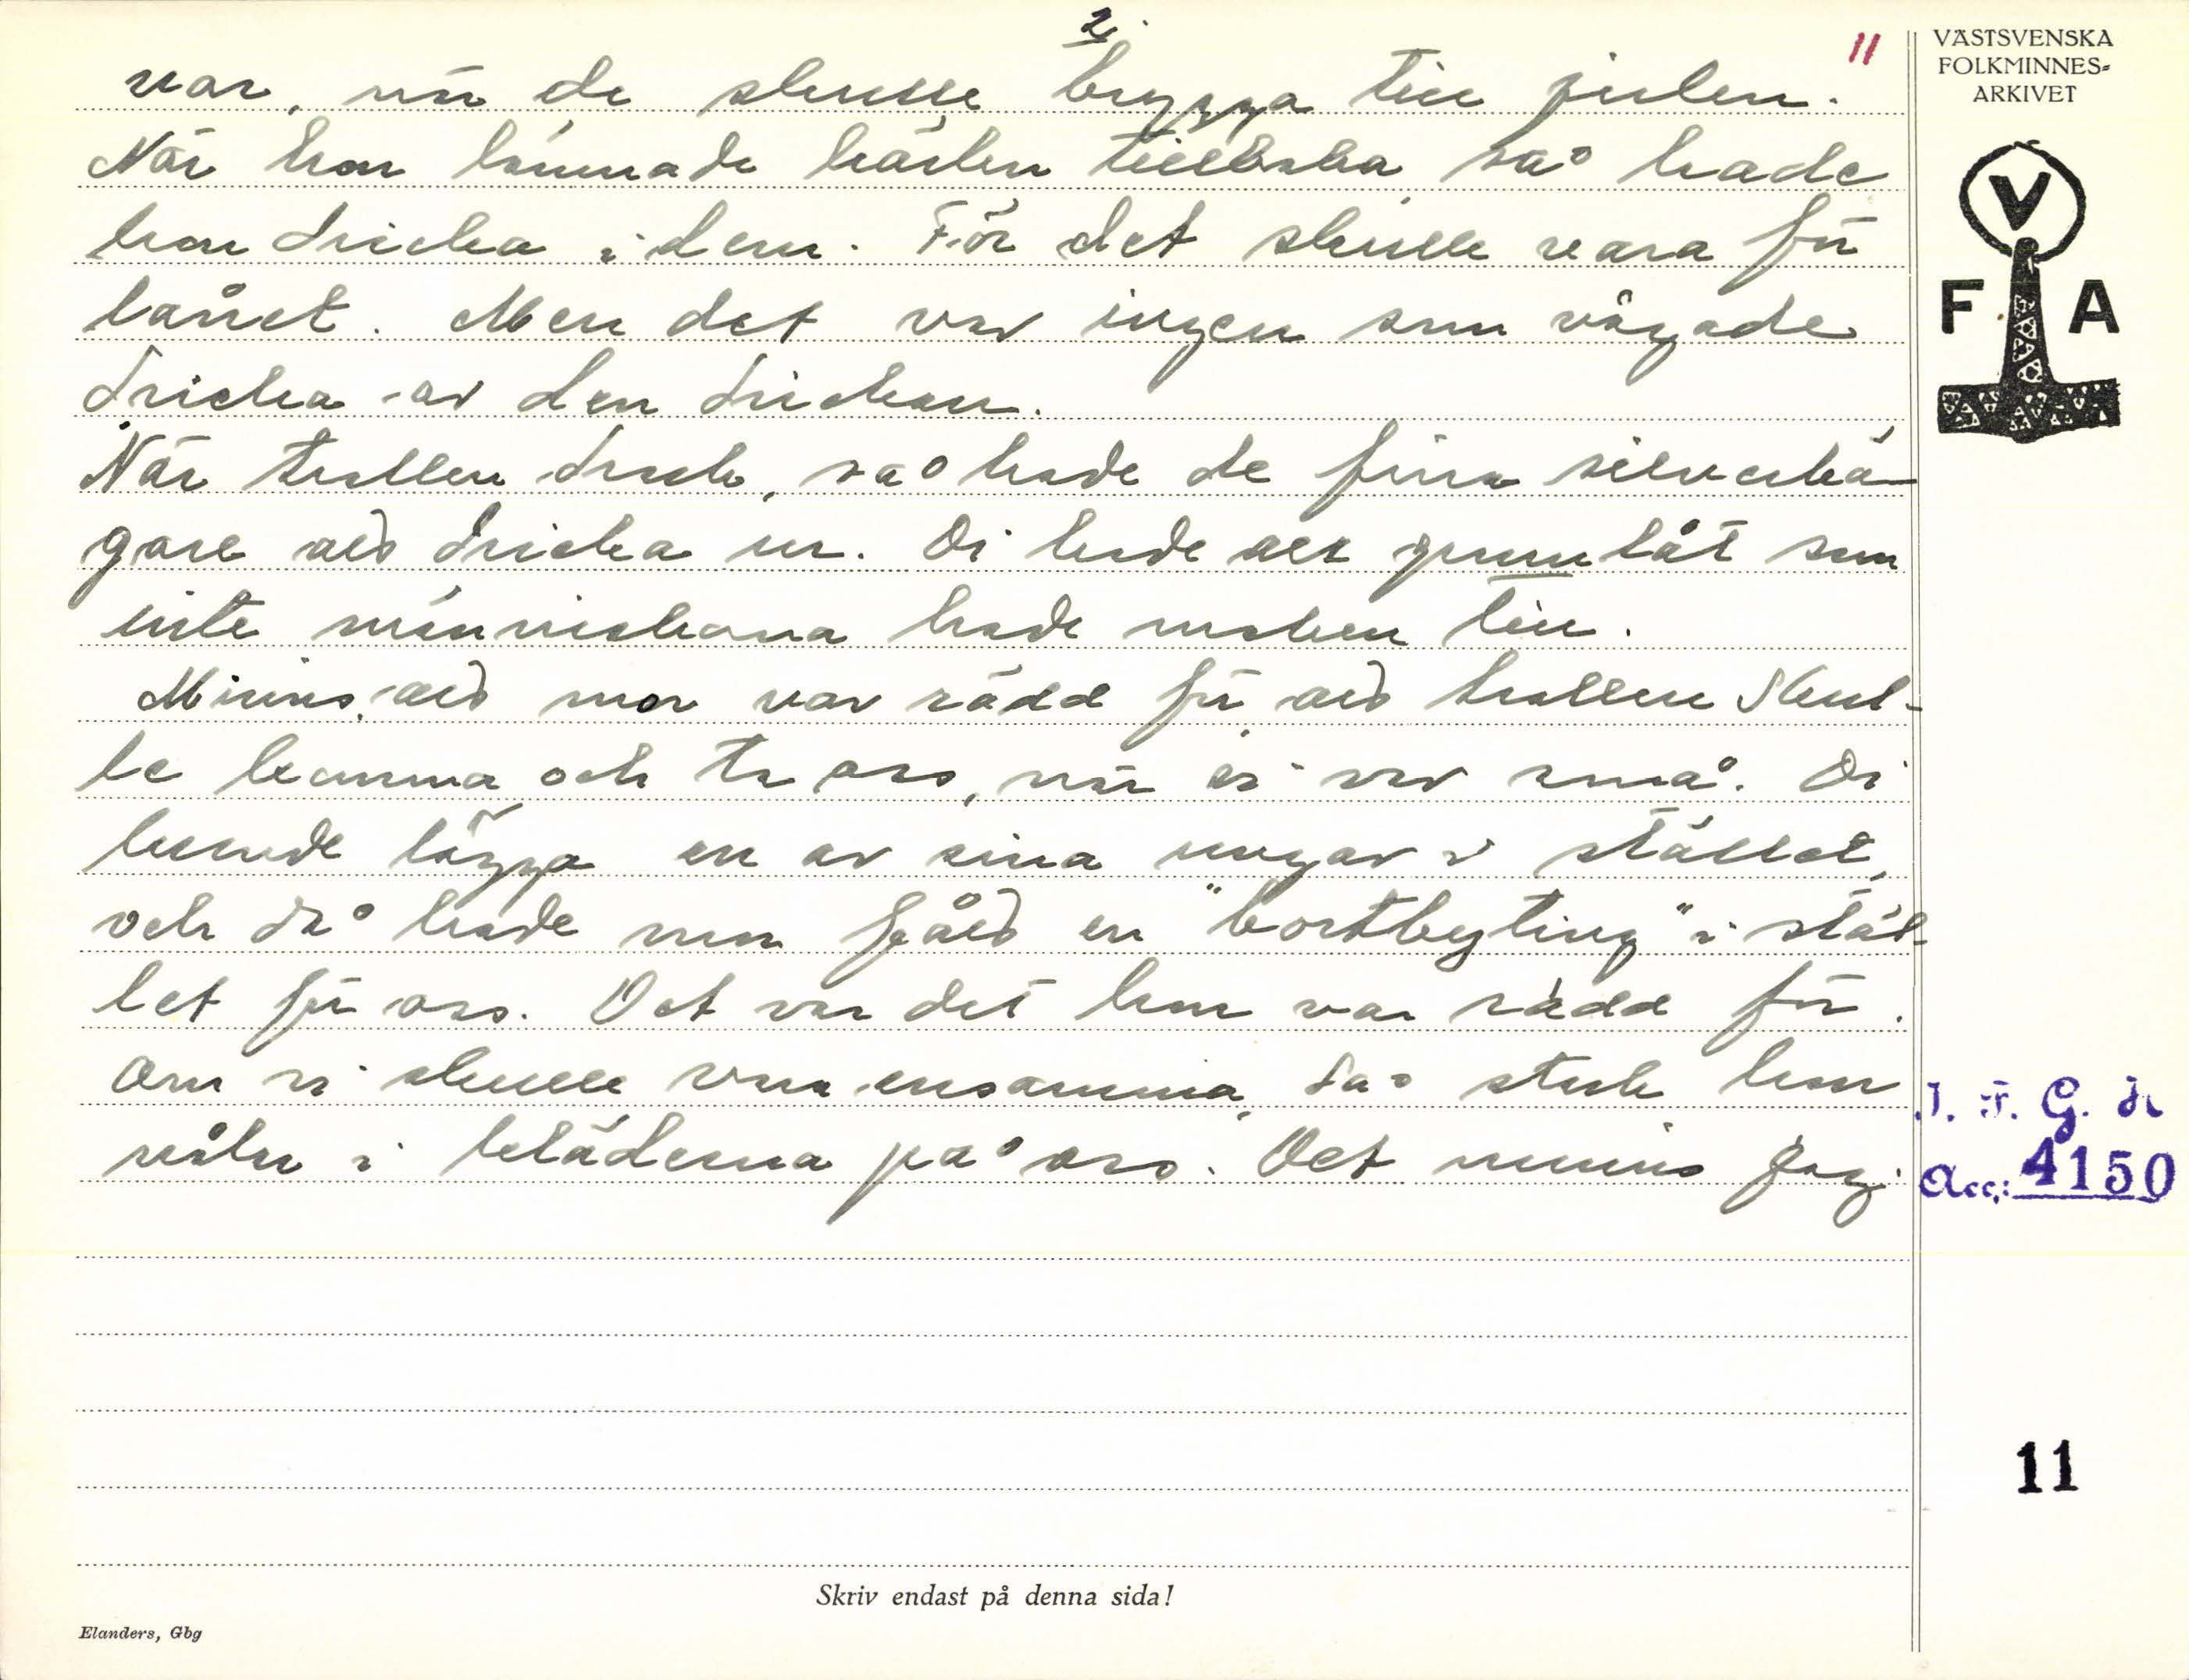 2.
11
var, när de skulle brygga till julen.
När hon lämnade kärlen tillbaka så hade
hon dricka i dem. För det skulle vara för
lånet. Men det var ingen som vågade
dricka av den drickan.
När trollen drack, så hade de fina silverbä-
gare att dricka ur. Di hade allt grannlåt som
inte människorna hade maken till.
Minns att mor var rädd för att trollen skul-
le komma och ta oss, när vi var små. Di
kunde lägga en av sina ungar i stället,
och då hade mor fått en "bortbyting" i stäl-
let för oss. Det var det hon var rädd för.
Om vi skulle vara ensamma, så stack hon
nålar i kläderna på oss. Det minns jag.
VÄSTSVENSKA
FOLKMINNES-
ARKIVET
V
F A
I. F. G. H
Acc.: 4150
11
Skriv endast på denna sida!
Elanders, Gbg